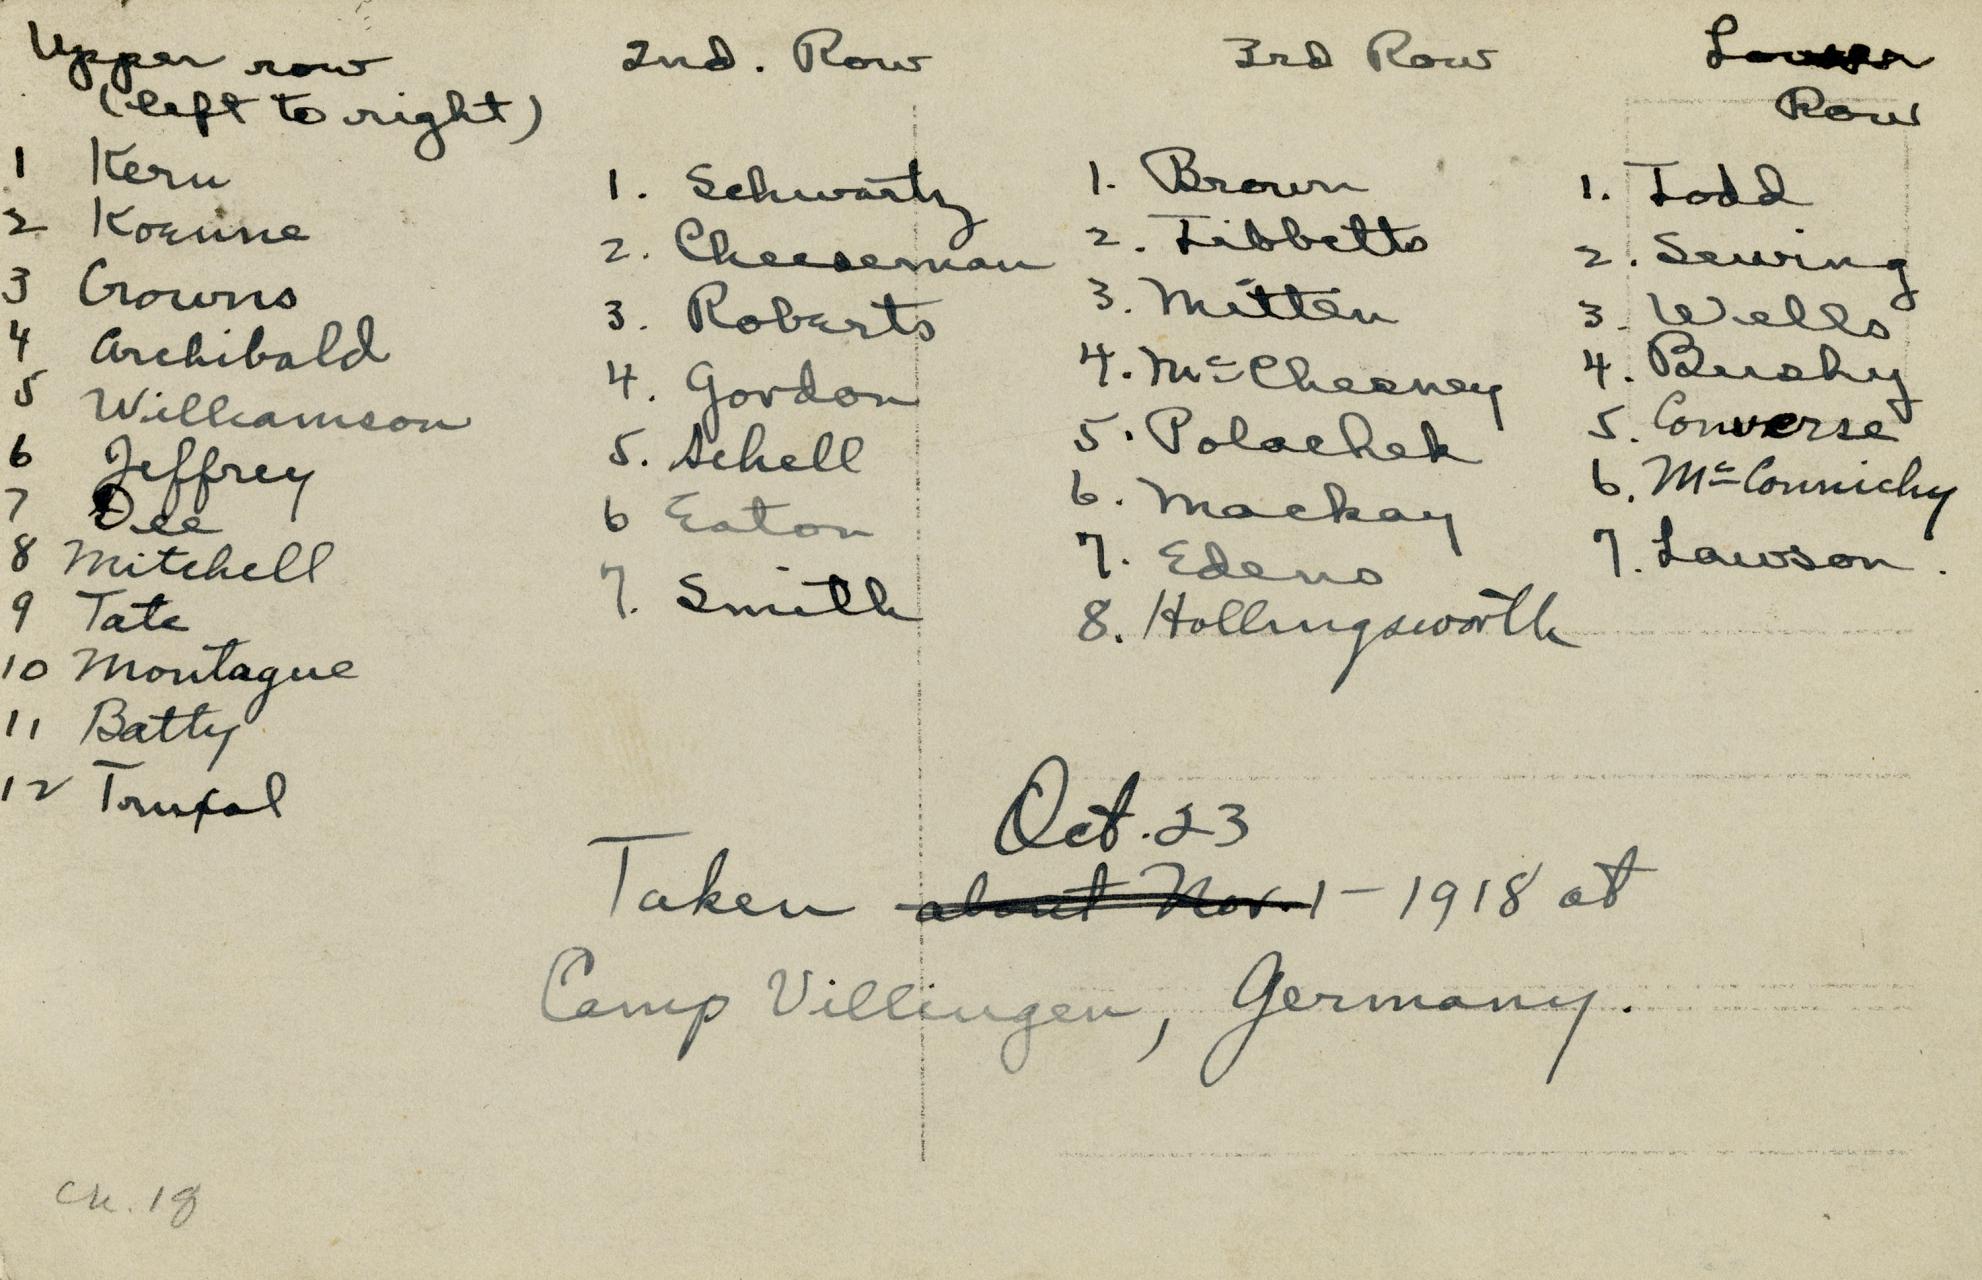 Upper row
(left to right)
1 Kern
2 Koenne
3 Crowns
4 Archibald
5 Williamson
6 Jeffrey
7 Dee
8 Mitchell
9 Tate
10 Montague
11 Batty
12 Truxal
2nd. Row
1. Schwartz
2. Cheeseman
3. Roberts
4. Gordon
5. Schell
6 Eaton
7. Smith
3rd Row
1. Brown
2. Tibbetts
3. Mitten
4. McChesney
5. Polachek
6. Mackay
7. Edens
8. Hollingsworth
Lower
Row
1. Todd
2. Sewing
3. Wells
4. Bushy
5. Converse
6. McConnichy
7. Lawson.
Oct. 23
Taken about Nov. 1 - 1918 at
Camp Villingen, Germany.
Ch. 18